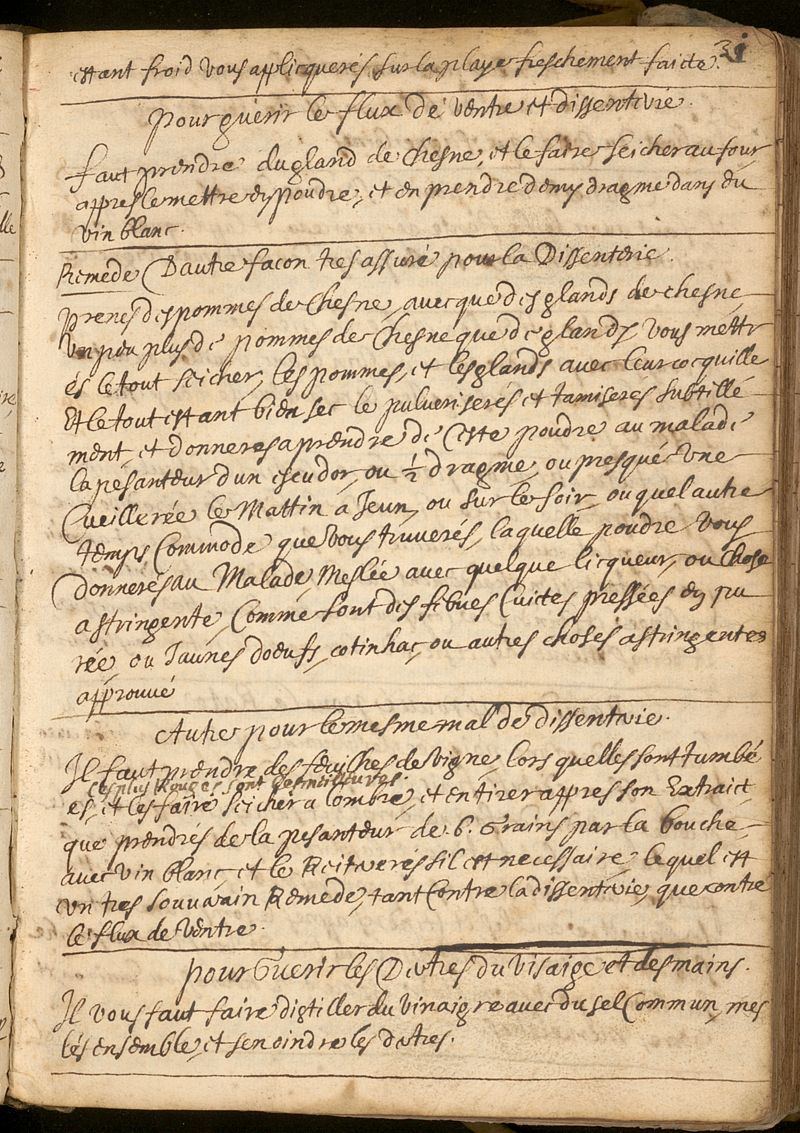 31
estant froid vous applicquerés sur la playe freschement faicte.
Pour guerir le flux de ventre et dissenterie.
faut prendre du gland de Chesne, et le faire seicher au four
appres le mettre en poudre, et en prendre demy dragme dans du
vin blanc.
Remede D'autre facon tres assuré pour la Dissenterie.
Prenes des pommes de Chesne, avecque des glands de chesne
Un peu plus de pommes de Chesne que de glands, vous mettr
és le tout seicher, les pommes, et les glands avec leur cocquille
Et le tout estant bien sec le pulveriserés et tamiseres subtille
ment, et donneres a prendre de Ceste poudre au malade
la pesanteur d'un escu d'or, ou ½ dragme, ou presque une
Cueillerée le Mattin à Jeun, ou sur le soir, ou quel autre
temps Commode que vous truverés, laquelle poudre vous
donneres au Malade, Meslée avec quelque licqueur, ou chose
astringente, Comme sont des febves Cuictes pressées en pu
rée, ou Jaunes d'oeufs, cotinhac, ou autres choses astringentes
approuvé
Autre pour le mesme mal de dissenterie.
Il faut prendre des feuilhes de vigne, lors quelles sont tumbé
les plus Rouges sont les meilleures.
es, et les faire seicher a lombre, et en tirer appres son Extraict
que prendres de la pesanteur de 6. Grains par la bouche
avec vin blanc, et le Reitererés sil est necessaire, lequel est
un tres souverain Remede, tant Contre la dissenterie, que contre
le flux de ventre.
Pour Guerir les Dertres du Visaige et des mains.
Il vous faut faire distiller du vinaigre avec du sel Commun, mes
lés ensemble, et s'en oindre les dertres.